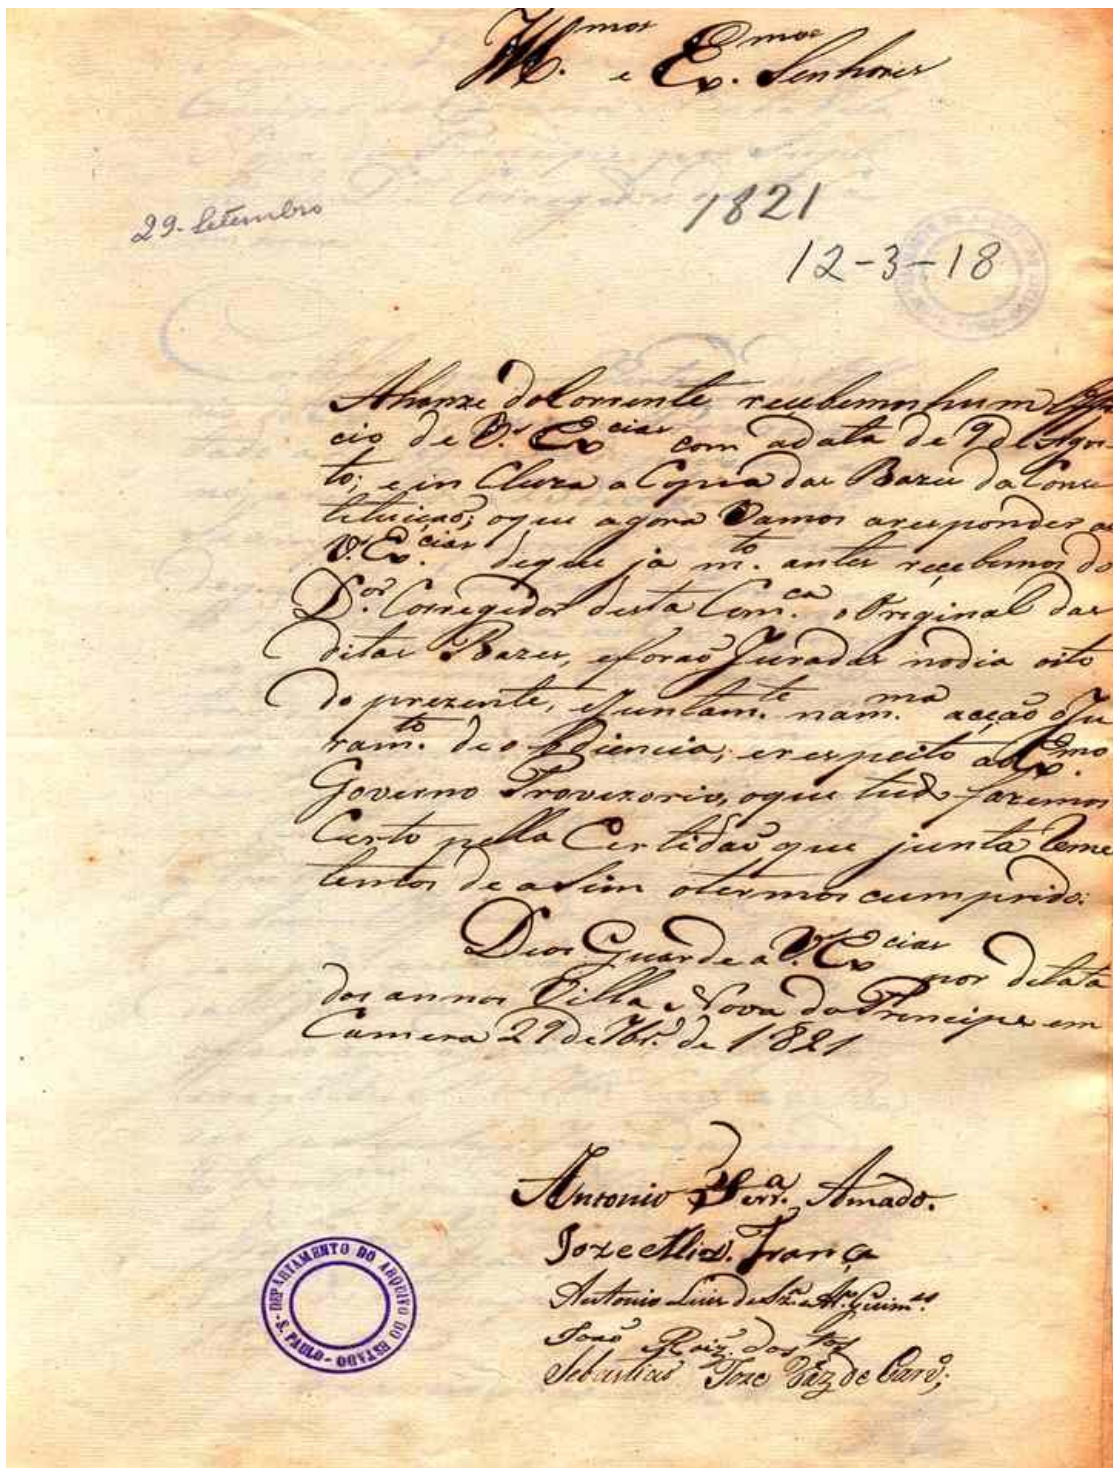 Ill.mos e Ex.mos Senhores
1821
29-Setembro
12-3-18
Ahonze do Corrente recebemos hum Offi
cio de V.s Ex.cias com adata de 9 de Agos-
to; e in Cluza a Copia das Bazes da Cons
tituição; oque agora Vamos aresponder a
V.s Ex.cias deque ja m.to antes recebemos do
D.or Corregedor desta Com.ca o Original das
ditas Bazes, eforaõ Juradas nodia oito
do prezente, ejuntam.te nam.ma acção oJu
ram.to de oBdiencia, erespeito ao Ex.mo
Governo Provezorio, oque tudo fazemos
Certo pella Certidaõ que junta Reme
temos de aSim otermos cumprido.
Deos Guarde a V.s Ex.cias por delata
dos annos Villa Nova do Principe em
Camera 29 de 7br.o de 1821
Antonio Ferr.a Amado.
Joze Alz. França
Antonio Luis de Sz.a Ar. Guim.es
João Roiz. dos S.tos
Sebastiaõ Joze Vaz de Carv.o;
DEPARTAMENTO DO ARQUIVO DO ESTADO
S. PAULO